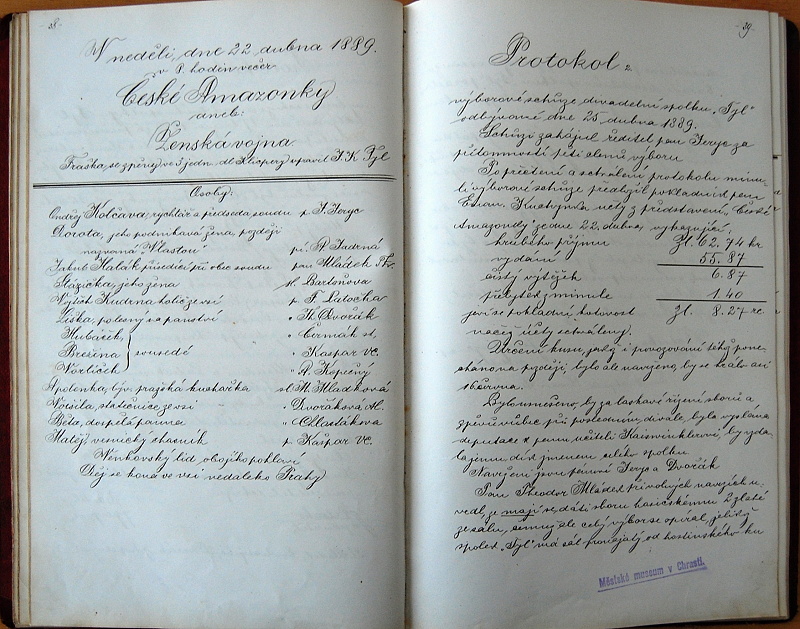 38.
V neděli, dne 22. dubna 1889.
v 8. hodin večer
České Amazonky
aneb:
Ženská vojna.
Fraška se zpěvy ve 3 jedn. dle Klicpery upravil J. K. Tyl
Osoby:
Ondřej Kolčava, rychtář a předseda soudu p. J. Jeryc
Dorota, jeho podnikavá žena, později
nazvaná "Vlastou" pí. A. Jadrná
Jakub Halák přísedící při obec. soudu pan Mládek
Stázička, jeho žena sl. Bartoňova
Vojtěch Kudrna holič ze vsi p. F. Latocha
Liška, polesný na panství " Dvořák
Hubáček, " Čermák st.
Březina sousedé " Kašpar Vc.
Vorlíček " A. Kopečný
Apolenka, býv. pražská kuchařka sl. M. Mládková
Voršila, statečnice ze vsi " Dvořáková Al.
Běta, dospělá panna " Chlastáková
Matěj, vesnický chasník p. Kašpar Vc.
Venkovský lid obojího pohlaví
Děj se koná ve vsi nedaleko Prahy
39.
Protokol
výborové schůze divadelní spolku "Tyl"
odbyvané dne 25. dubna 1889.
Schůzi zahájil ředitel pan Jeryc za
přítomnosti šesti členů výboru
Po přečtení a schválení protokolu minu-
lé výborové schůze předložil pokladník pan
účty z představení "České
Amazonky" ze dne 22. dubna, vykazující:
hrubého příjmu Zl. 62.74 kr
vydání 55.87
čistý výtěžek 6.87
přebytek z minule 1.40
jeví se pokladní hotovost zl. 8.27 kr.
načež účty schváleny.
Určení kusu, jakož i provozování téhož pone-
cháno na později, bylo ale navrženo, by se hrálo ani
Bylo usneseno, by za laskavé řízení sborů a
zpěvů vůbec při posledním divadle, byla vyslána
deputace k panu učiteli by vzda-
la jemu dík jménem celého spolku.
Navrženi jsou pánové Jeryc a Dvořák
Pan Theodor Mládek při volných návrzích u-
vedl, že mají se dáti sboru hasičskému 2 zlaté
ze sálu, čemuž ale celý výbor se opíral, jelikož
spolek "Tyl" má sál pronajatý od hostinského ku
Městské museum v Chrasti.